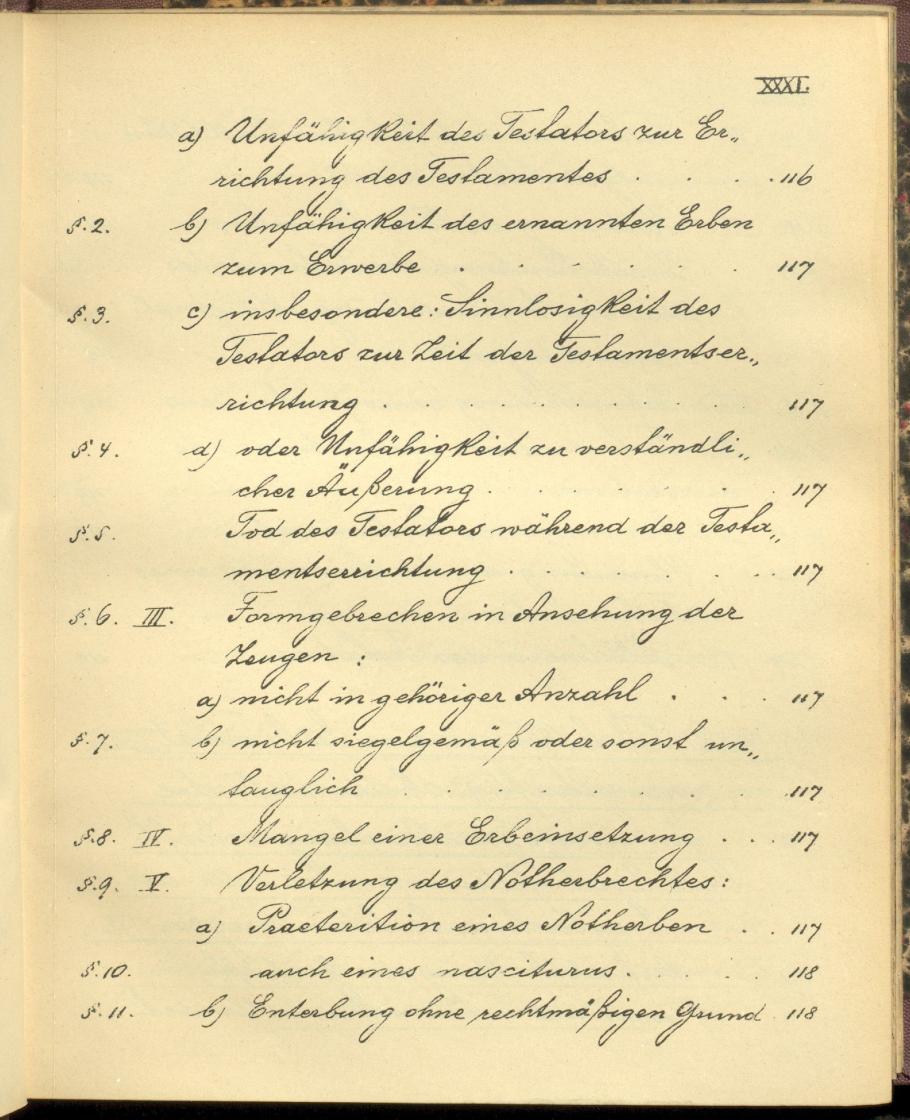 XXXI.
a) Unfähigkeit des Testators zur Er„
richtung des Testamentes . . . . 116
§. 2. b) Unfähigkeit des ernannten Erben
zum Erwerbe . . . . . . . 117
§. 3. c) insbesondere: Sinnlosigkeit des
Testators zur Zeit der Testamentser„
richtung . . . . . . . . . 117
§. 4. d) oder Unfähigkeit zu verständli„
cher Äußerung . . . . . . . 117
§. 5. Tod des Testators während der Testa„
mentserrichtung . . . . . . . 117
§. 6. III. Formgebrechen in Ansehung der
Zeugen :
a) nicht in gehöriger Anzahl . . . 117
§. 7. b) nicht siegelgemäß oder sonst un„
tauglich . . . . . . . . . 117
§. 8. IV. Mangel einer Erbeinsetzung . . . 117
§. 9. V. Verletzung des Notherbrechtes:
a) Praeterition eines Notherben . . 117
§. 10. auch eines nasciturus . . . . . 118
§. 11. b) Enterbung ohne rechtmäßigen Grund . 118